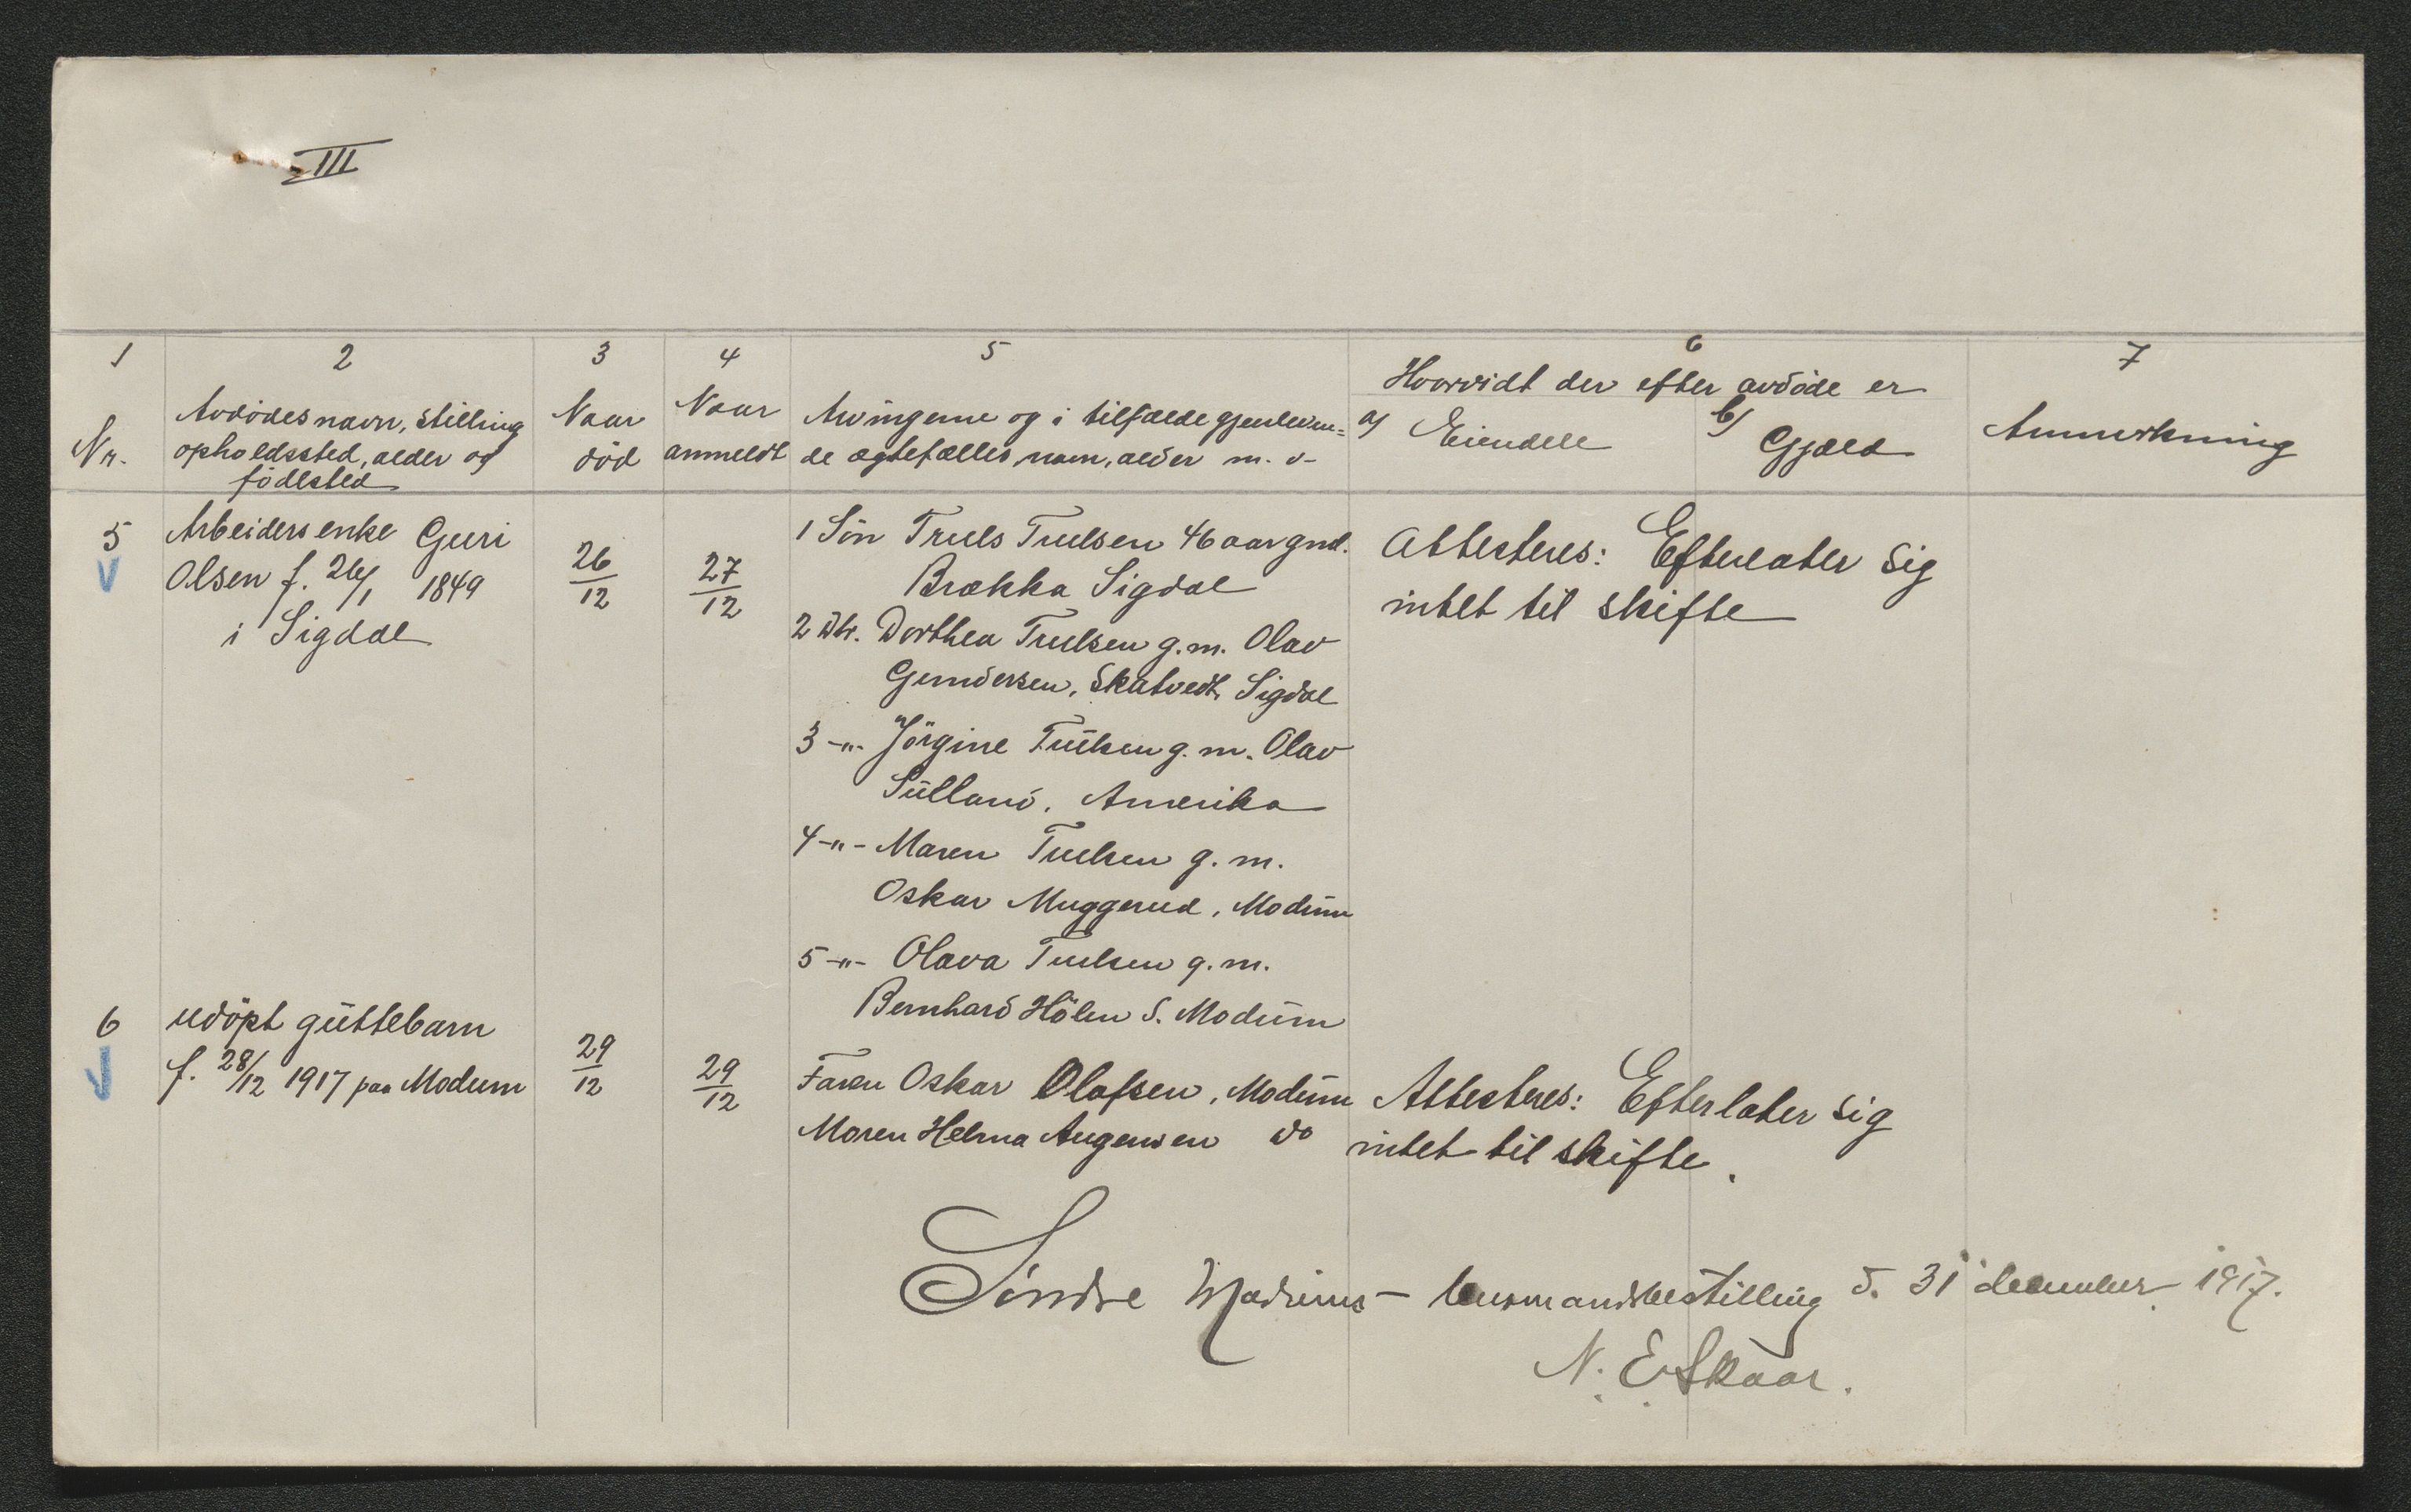 III
1 2 3 4 5 6 7
Hvorvidt der efter avdöde er
Nr.
Avdödes navn, stilling
opholdssted, alder og
födested
Naar
död
Naar
anmeldt
Arvingerne og i tilfælde gjenleven=
de ægtefælles navn, alder m. v.
a) Eiendele
b) Gjæld
Anmerkning
5
Arbeidersenke Guri
Olsen f. 26/1 1849
i Sigdal
26/12
27/12
1 Sön Truls Truelsen 46 aar gmd.
Brækka Sigdal
2 Dtr. Dorthea Truelsen g.m. Olav
Gundersen, Skatvedt, Sigdal
3 -"- Jörgine Truelsen g.m. Olav
Sulland, Amerika
4 -"- Maren Truelsen g. m.
Oskar Muggerud, Modum
5 -"- Olava Truelsen g.m.
Bernhard Hölen S. Modum
Attesteres: Efterlater sig
intet til skifte
6
udöpt guttebarn
f. 28/12 1917 paa Modum
29/12
29/12
Faren Oskar Olafsen, Modum
Moren Helma Augensen do
Attesteres: Efterlater sig
intet til skifte.
Söndre Modums - lensmandsbestilling d. 31 december 1917.
N. E. Skaar.